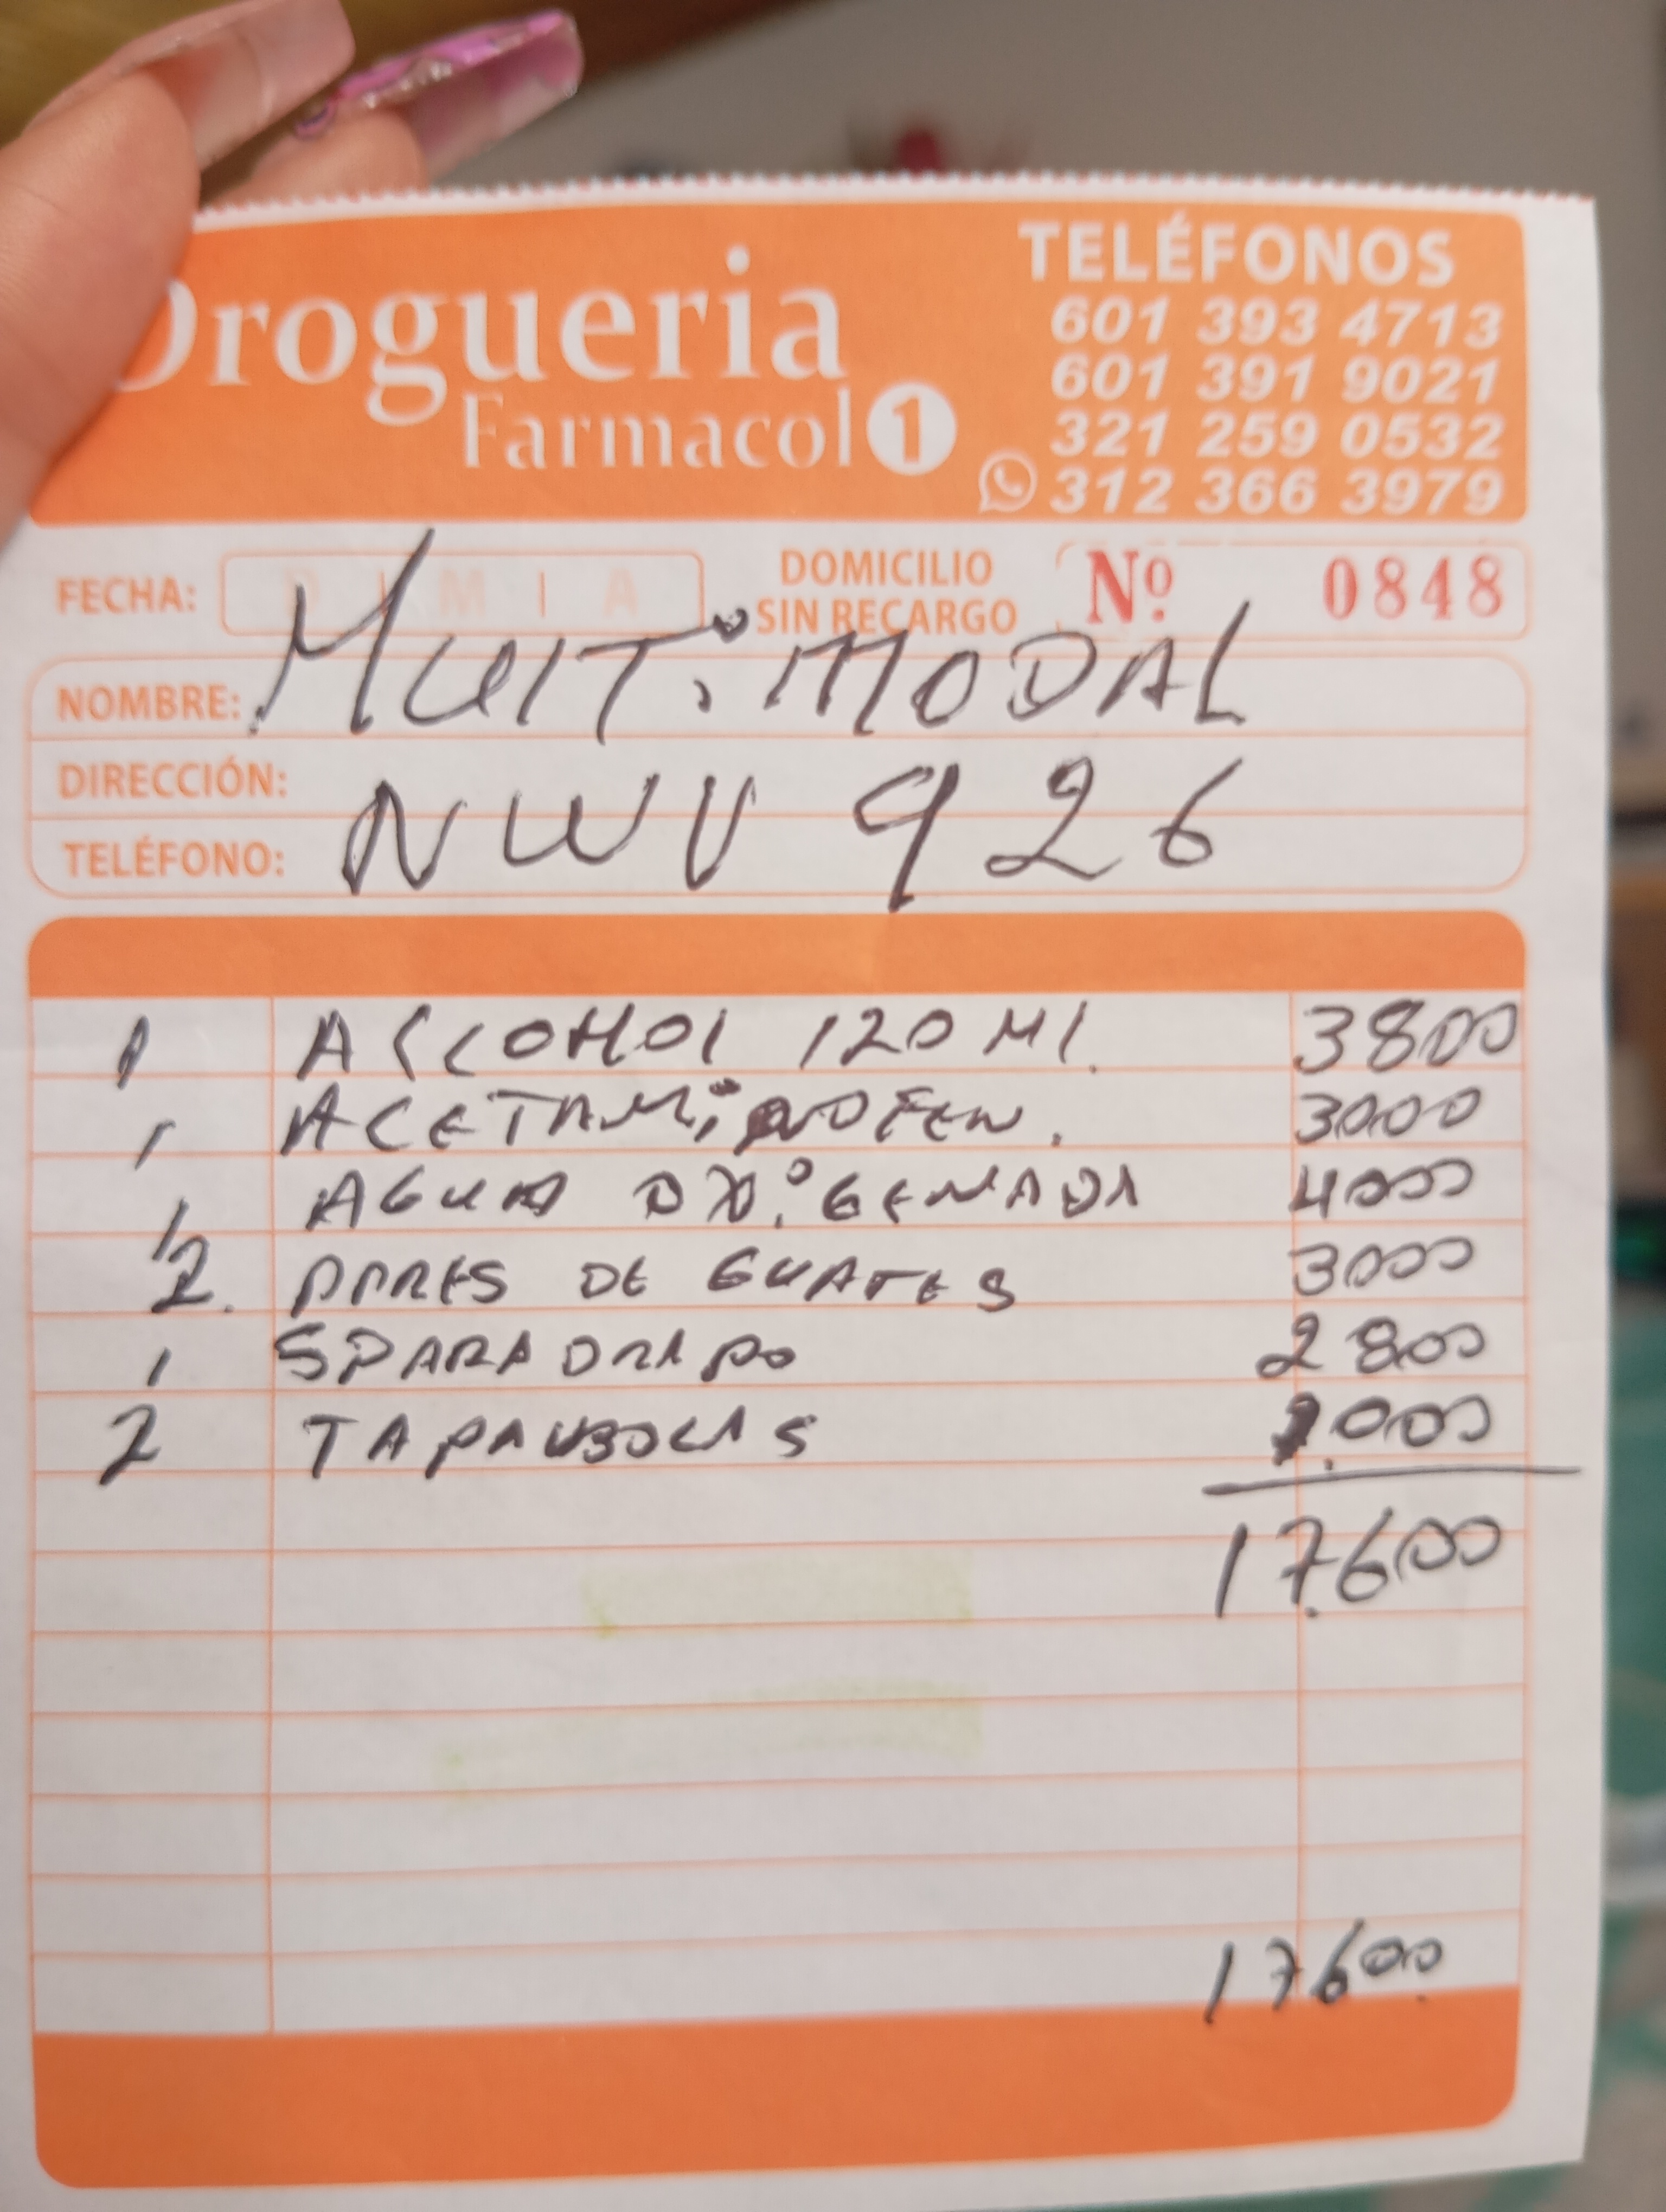 Drogueria
Farmacol 1
TELÉFONOS
601 393 4713
601 391 9021
321 259 0532
312 366 3979
FECHA: D M A
DOMICILIO
SIN RECARGO
Nº 0848
NOMBRE: MULTiMODAL
DIRECCIÓN:
TELÉFONO: NWV 926
1 ALCOHOL 120 Ml. 3800
1 ACETAMiNOFEN. 3000
1 AGUA OXiGENADA 4000
2. PARES DE GUATES 3000
1 SPARADRAPO 2800
2 TAPAUBOCAS 1.000
17.600
17600